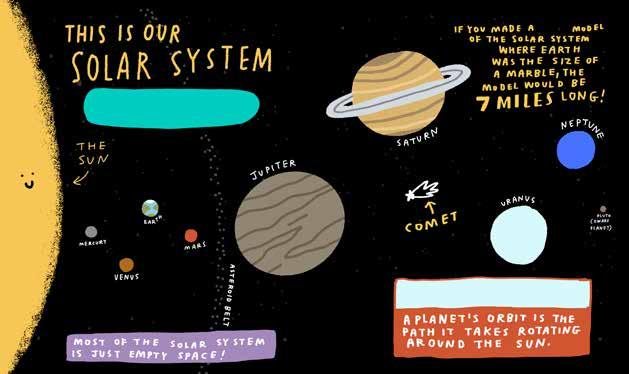 THIS IS OUR
SOLAR SYSTEM
IF YOU MADE A MODEL
OF THE SOLAR SYSTEM
WHERE EARTH
WAS THE SIZE OF
A MARBLE, THE
MODEL WOULD BE
7 MILES LONG!
THE
SUN
SATURN
NEPTUNE
JUPITER
COMET
URANUS
PLUTO
(DWARF
PLANET)
EARTH
MERCURY
MARS
VENUS
ASTEROID BELT
A PLANET'S ORBIT IS THE
PATH IT TAKES ROTATING
AROUND THE SUN.
MOST OF THE SOLAR SYSTEM
IS JUST EMPTY SPACE!